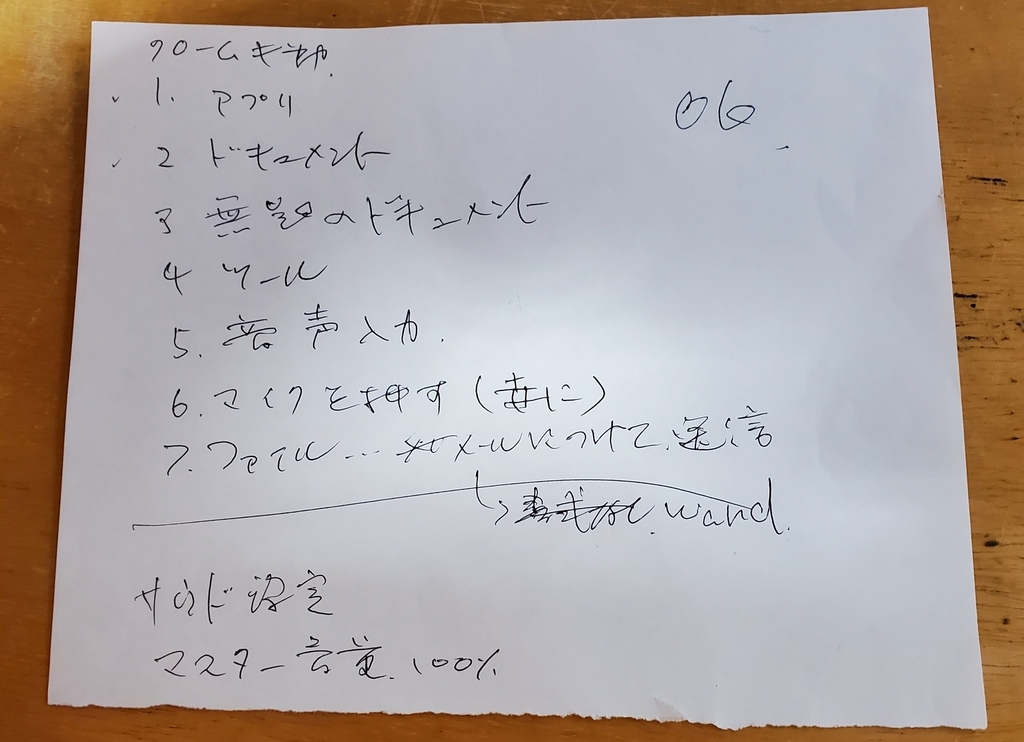 クロームキ動.
✓ 1. アプリ
06.
✓ 2 ドキュメント
3 無題のドキュメント
4 ツール
5. 音声入力.
6. マイクを押す(赤に)
7. ファイル… メールにつけて.送信
↳ 書式なし. ward.
サウンド設定
マスター音量.100%